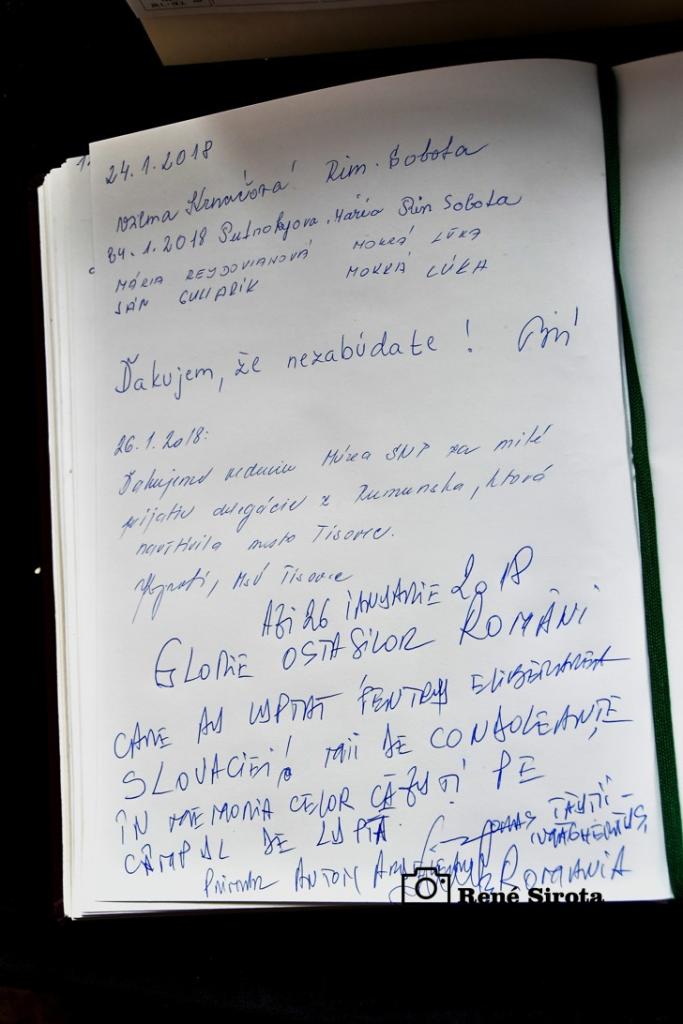 24.1.2018
Vilma Krnáčová Rim. Sobota
24.1.2018 Putnokyova Mária Rim Sobota
MÁRIA REJDOVIANOVÁ MOKRÁ LÚKA
JÁN GULIARIK MOKRÁ LÚKA
Ďakujem, že nezabúdate!
26.1.2018:
Ďakujeme vedeniu Múzea SNP za milé
prijatie delegácie z Rumunska, ktorá
navštívila mesto Tisovec.
MsÚ Tisovec
AZI 26 IANUARIE 2018
GLORIE OSTAȘILOR ROMÂNI
CARE AU LUPTAT PENTRU ELIBERAREA
SLOVACIEI! MII DE CONDOLEANȚE
ÎN MEMORIA CELOR CĂZUȚI PE
CÂMPUL DE LUPTĂ
ORAȘ TĂUȚII-
MĂGHERĂUȘ,
PRIMAR ANTON
ROMANIA
René Sirota